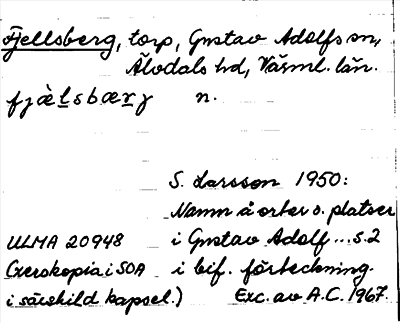 Fjellsberg, torp, Gustav Adolfs sn,
Älvdals hd, Värml. län.
fjæ̀lsbærj n.
S. Larsson 1950:
Namn å orter o. platser
ULMA 20948 i Gustav Adolf ... s. 2
(Xeroxkopia i SOA i bif. förteckning.
i särskild kapsel.) Exc. av A.C. 1967.